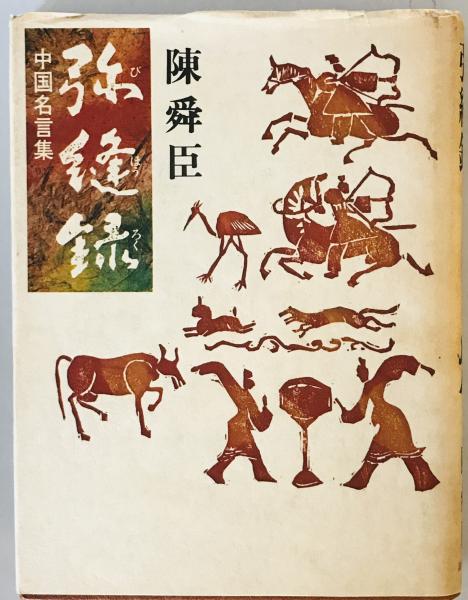 陳舜臣
弥縫録
び
ほう
ろく
中国名言集
弥縫録